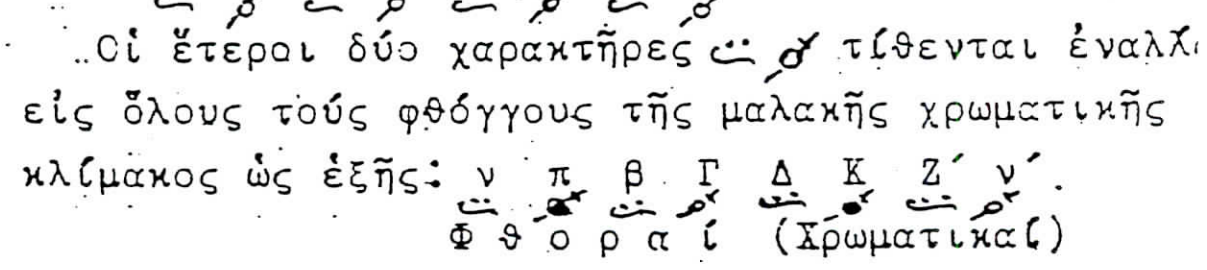 Οἱ ἕτεροι δύο χαρακτῆρες τίθενται
εἰς ὅλους τούς φθόγγους τῆς μαλακῆς χρωματικῆς
κλίμακος ὡς ἑξῆς: ν π β Γ Δ Κ Ζ´ ν´.
Φθοραί (Χρωματικαί)